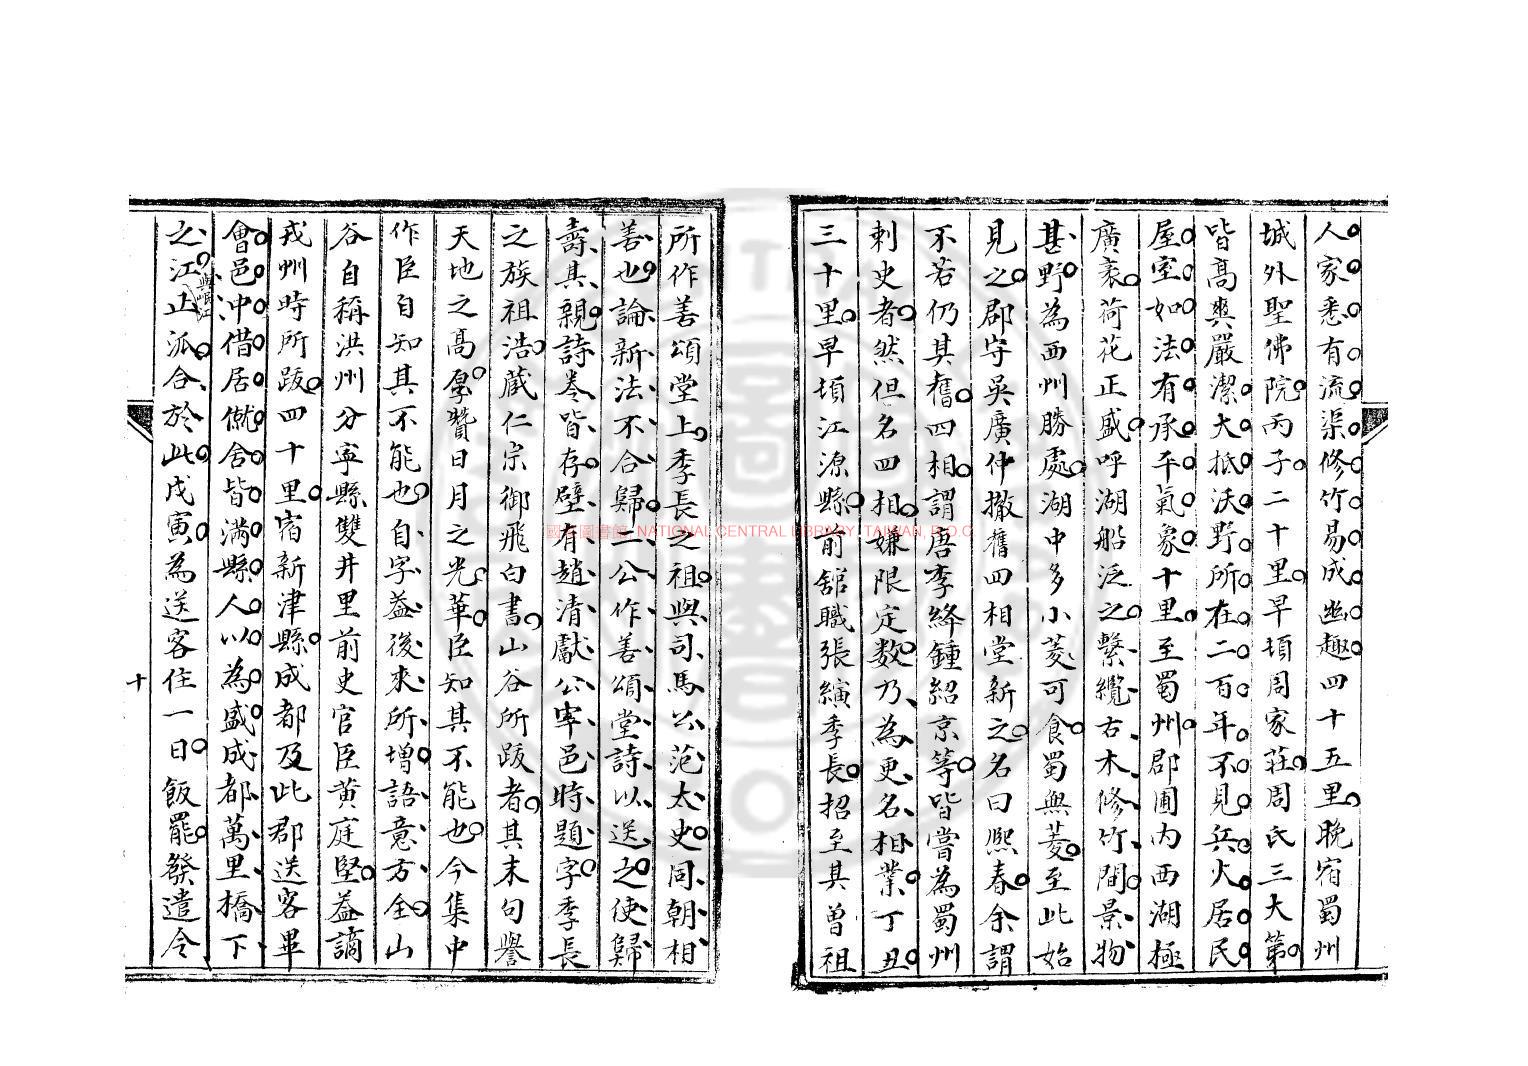 人家悉有流渠修竹易成幽趣四十五里晚宿蜀州
城外聖佛院丙子二十里早頓周家莊周氏三大第
皆高爽嚴潔大抵沃野所在二百年不見兵火居民
屋室如法有承平氣象十里至蜀州郡圃内西湖極
廣袤荷花正盛呼湖船泛之繫纜古木修竹間景物
甚野為西州勝處湖中多小菱可食蜀無菱至此始
見之郡守吳廣仲撤舊四相堂新之名曰熙春余謂
不若仍其舊四相謂唐李絳鍾紹京等皆嘗為蜀州
刺史者然但名四相嫌限定数乃為更名相業丁丑
三十里早頓江源縣前舘職張縯季長招至其曽祖
所作善頌堂上季長之祖與司馬公范太史同朝相
善也論新法不合歸二公作善頌堂詩以送之使歸
壽其親詩卷皆存壁有趙清獻公宰邑時題字季長
之族祖浩蔵仁宗御飛白書山谷所跋者其末句譽
天地之高厚贊日月之光華臣知其不能也今集中
作臣自知其不能也自字葢後來所増語意方全山
谷自稱洪州分寧縣雙井里前史官臣黄庭堅葢謫
戎州時所跋四十里宿新津縣成都及此郡送客畢
會邑中借居僦舍皆满縣人以為盛成都萬里橋下
之江與岷江正派合於此戊寅為送客住一日飯罷發遣令
十
國家圖書館 NATIONAL CENTRAL LIBRARY, TAIWAN, R.O.C